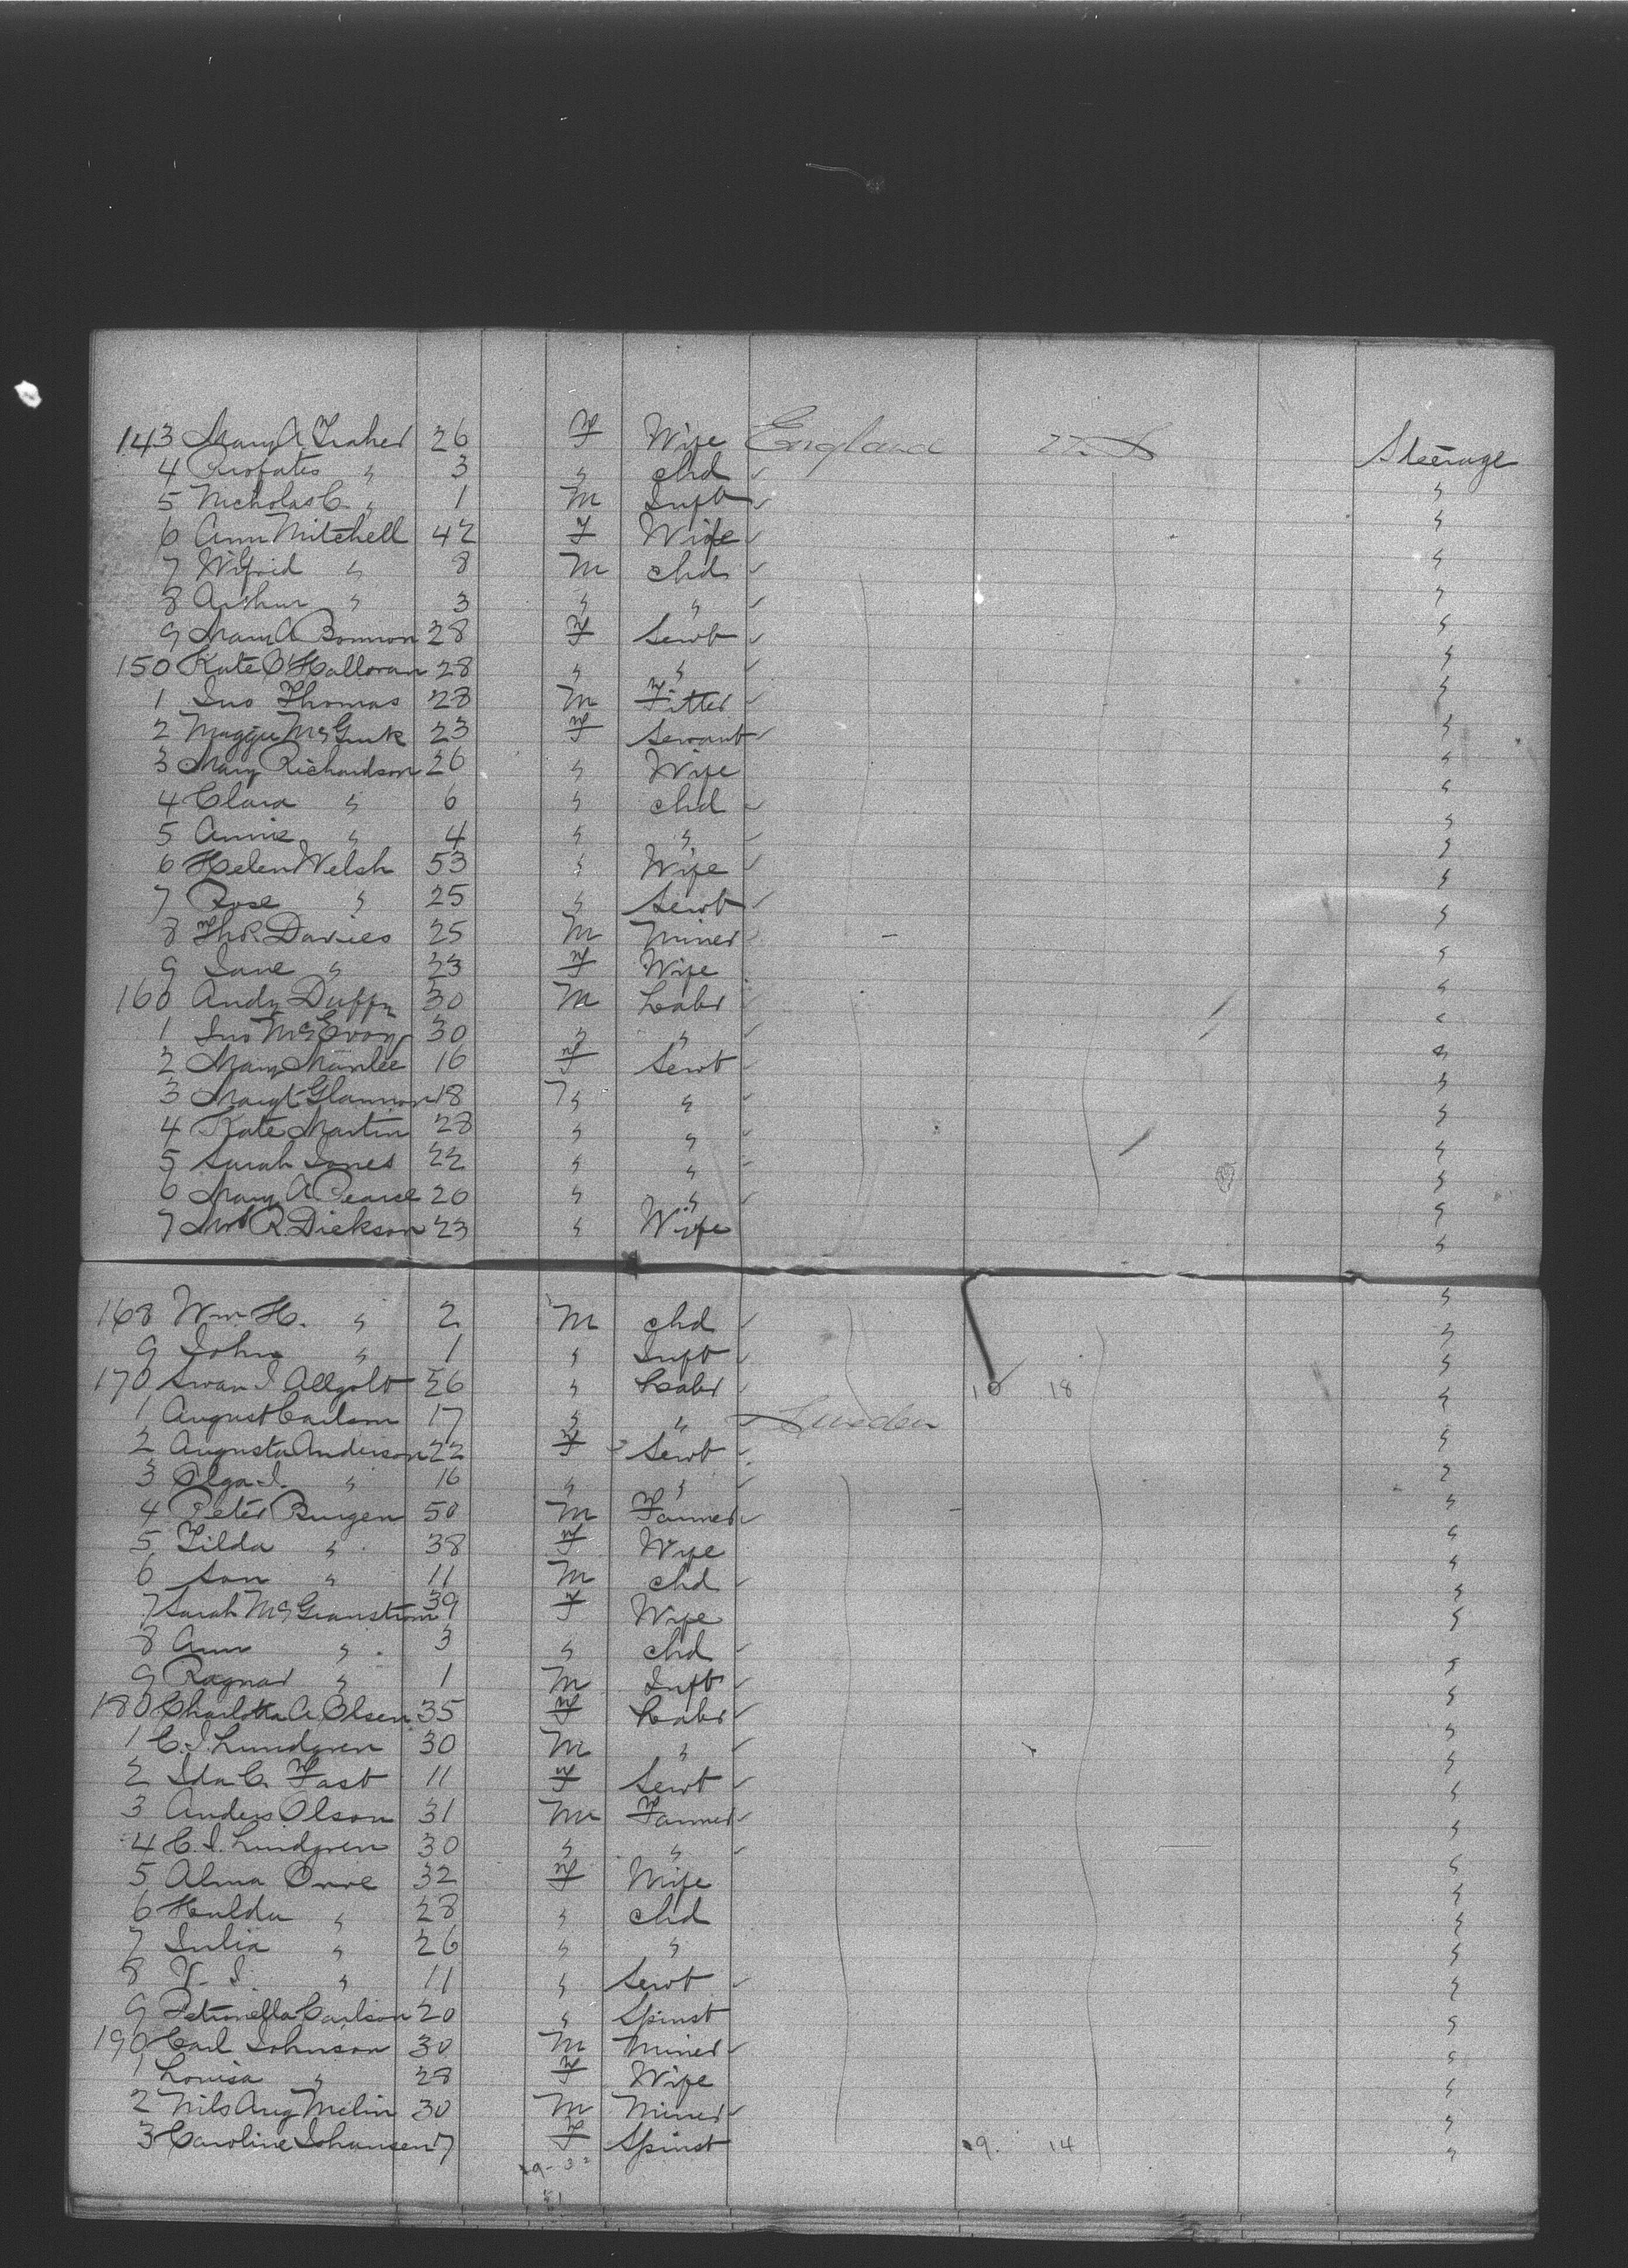 143 Mary A. Fraher 26 F Wife England U.S. Steerage
4 " 3 " chd "
5 Nicholas C. " 1 M Inft "
6 Ann Mitchell 42 F Wife "
7 Wilfrid " 8 M chd "
8 Arthur " 3 " " "
9 Mary A 28 F Servt "
150 Kate O'Halloran 28 " " "
1 Jno Thomas 28 M Fitter "
2 Maggie McGurk 23 F Servant "
3 Mary Richardson 26 " Wife "
4 Clara " 6 " chd "
5 Annie " 4 " " "
6 Helen Welsh 53 " Wife "
7 Rose " 25 " Servt "
8 Th R Davies 25 M Miner "
9 Jane " 23 F Wife "
160 Andy Duffy 30 M Labr "
1 Jno McEvoy 30 " " "
2 Mary 16 F Servt "
3 Margt Glannon 18 " " "
4 Kate Martin 28 " " "
5 Sarah Jones 22 " " "
6 Mary A Pearce 20 " " "
7 Mrs R. Dickson 23 " Wife "
168 Wm H. " 2 M chd "
9 John " 1 " Inft "
170 Swan J Allgolt 56 " Labr 10 18 "
1 August Carlson 17 " " Sweden "
2 Augusta Anderson 22 F Servt "
3 Olga J. " 16 " " "
4 Peter Burgen 50 M Farmer "
5 Tilda " 38 F Wife "
6 Son " 11 M chd "
7 Sarah McGranstrom 39 F Wife "
8 Ann " 3 " chd "
9 Ragnar " 1 M Inft "
180 Charlotta A. Olsen 35 F Labr "
1 C. J. Lundgren 30 M " "
2 Ida C. Fast 11 F Servt "
3 Anders Olson 31 M Farmer "
4 C. J. Lindgren 30 " " "
5 Alma 32 F Wife "
6 Hulda " 28 " chd "
7 Julia " 26 " " "
8 V. J. " 11 " Servt "
9 Petronella Carlson 20 " Spinst "
190 Carl Johnson 30 M Miner "
1 Louisa " 28 F Wife "
2 Nils Aug Melin 30 M Miner "
3 Caroline Johansen 17 F Spinst 9. 14 "